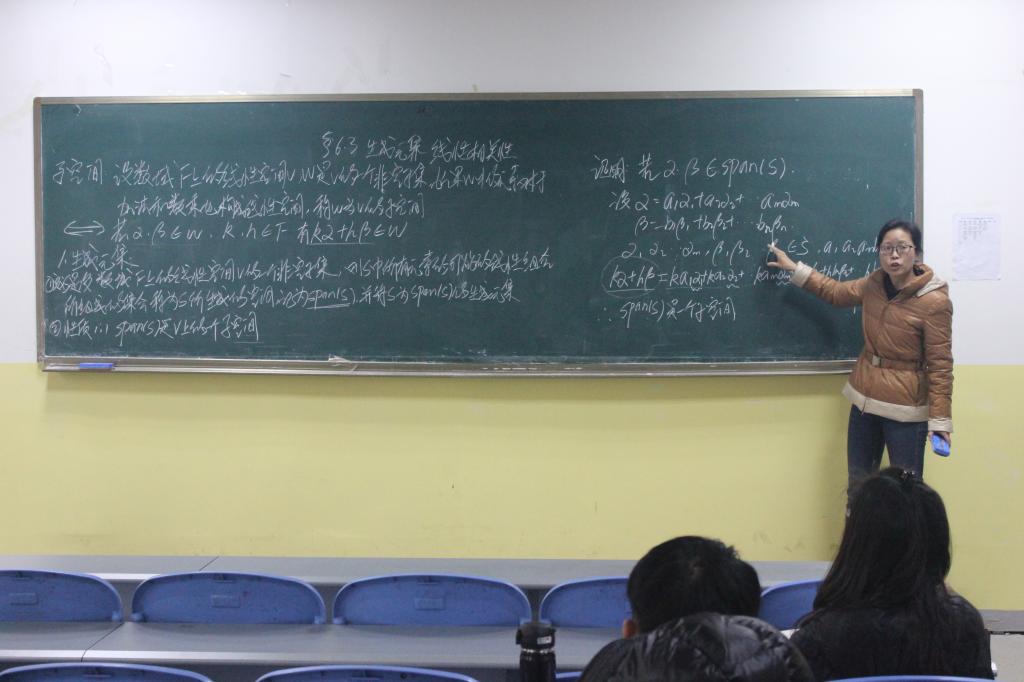 §6.3 生成元集 线性相关性
子空间 设数域F上的线性空间V,W是V的一个非空集,如果W对V的
加法和数乘也构成线性空间,称W为V的子空间
⟺ 若α.β∈W, k.h∈F 有kα+hβ∈W
1.生成元集
设S是数域F上的线性空间V的一个非空集, 则S中所有元素的所有的线性组合
所组成的集合称为S所生成的空间,记为span(S).并称S为span(S)的生成元集
②性质:(1) span(S)是V上的一个子空间
证明:若α.β∈span(S).
设α=a₁α₁+a₂α₂+ aₘαₘ
β=b₁β₁+b₂β₂+…bₙβₙ.
α₁α₂…αₘ,β₁,β₂ ∈S, a₁,a₂
kα+hβ=ka₁α₁+ka₂α₂+ kaₘαₘ
∴ span(S)是一个子空间